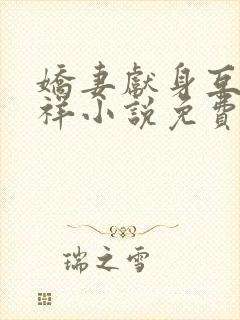 嬌妻獻身互
祥小說免費
瑞之雪